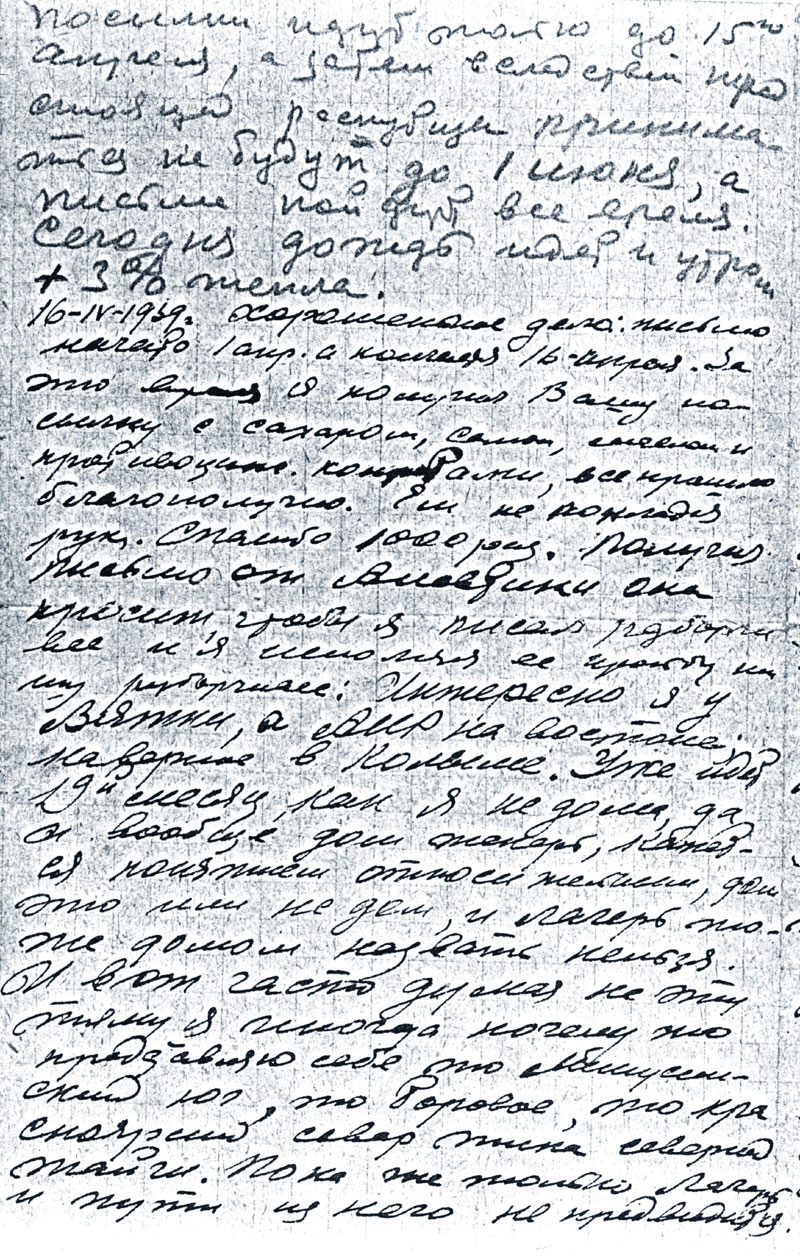 посылки идут только до 15го
апреля, а затем вследствии пред
стоящей распутицы принима-
тся не будут до 1 июня, а
письма пойдут все время.
Сегодня дождь идет и утром
+ 3% тепла.
16-IV-1939г. Хорошенькое дело: письмо
начато 1 апр. а кончается 16-апреля. За
это время я получил Вашу по-
сылку с сахаром, салом, мылом и
противоцинг. конфетами, все пришло
благополучно. Ей не
рук. Спасибо 1000 раз. Получил
письмо от она
просит чтобы я писал разборчи
вее и я исполняя ее просьбу пи
шу разборчивее: Интересно я у
Вятки, а на востоке,
наверное в Колыме. Уже идет
19й месяц как я не дома, да
и вообще дом теперь, кажет-
ся понятием относительным, дом
это или не дом, и лагерь то-
же домом назвать нельзя.
И вот часто думая на эту
тему я иногда почему то
представляю себе то Минусин-
ский юг, то Боровое, то кра
сноярский север типа северной
тайги. Пока же только Лагерь
и пути из него не предвидится.